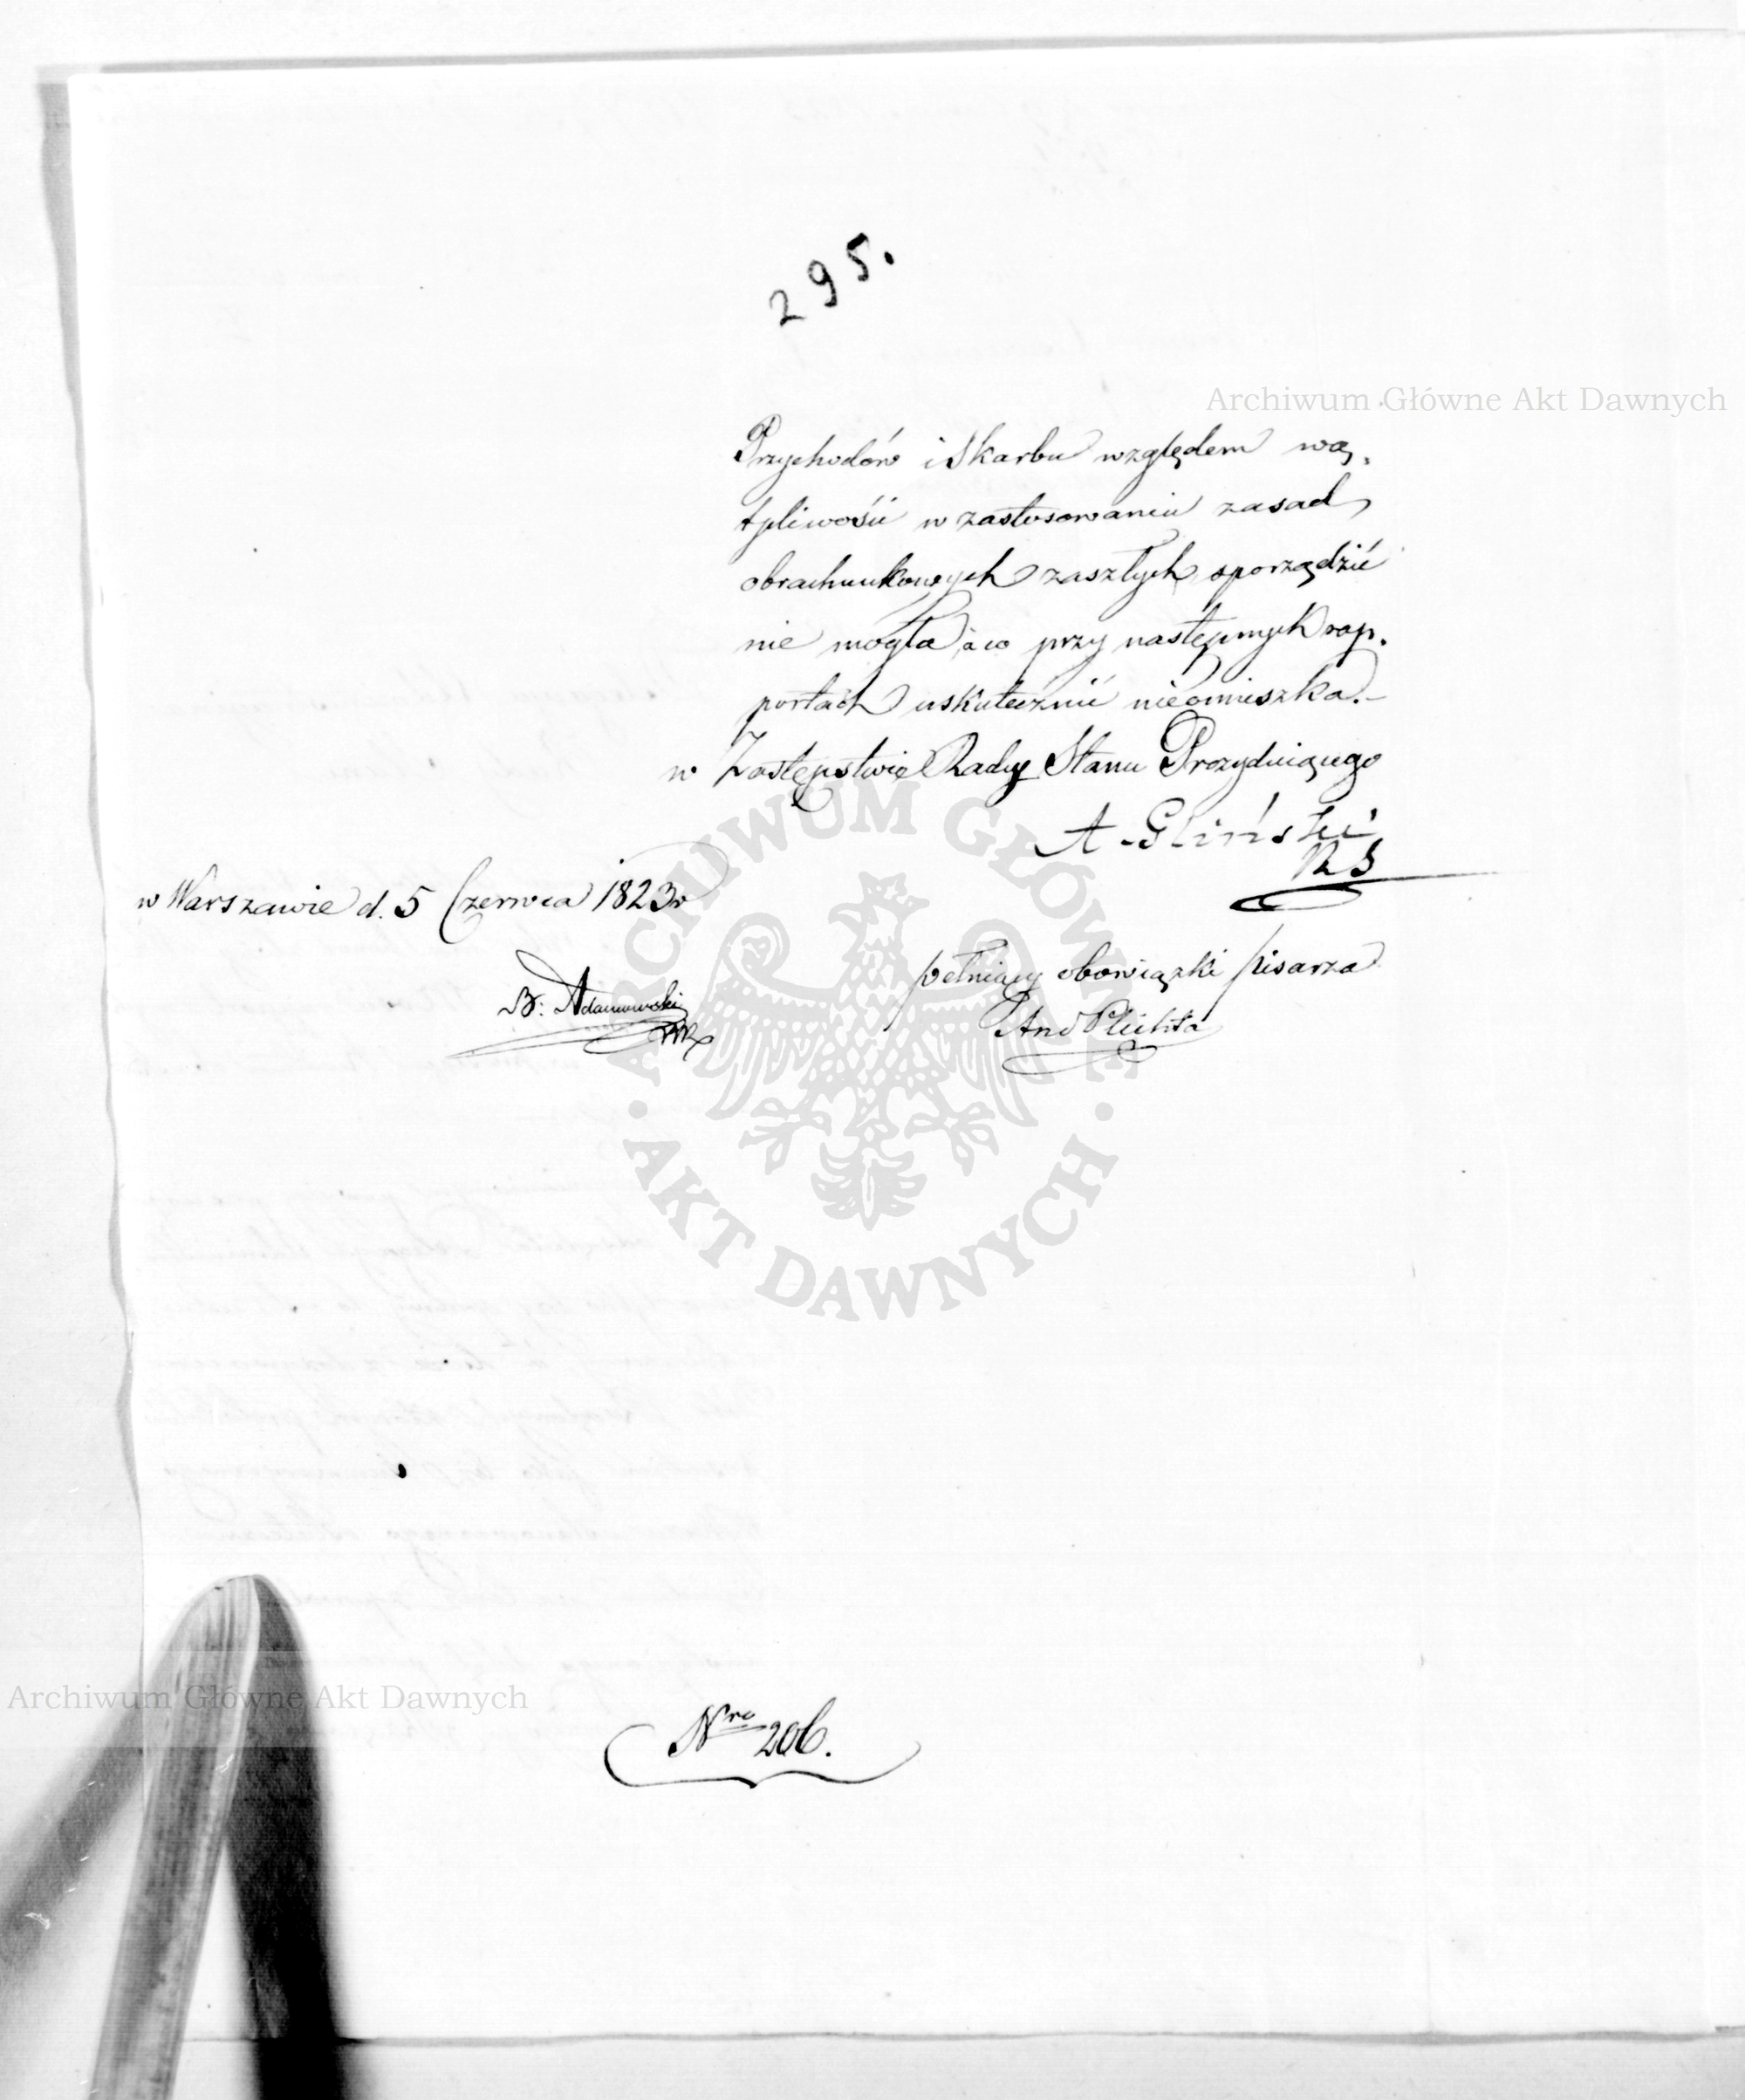 295.
Archiwum Główne Akt Dawnych
Przychodów i Skarbu względem wą,
tpliwości w zastosowaniu zasad
obrachunkowych zaszłych, sporządzić
nie mogła, a co przy następnych rap,
portach uskutecznić nieomieszka.–
w Zastępstwie Radcy Stanu Prezyduiącego
A. Gliński
RS
w Warszawie d. 5 Czerwca 1823 r
pełniący obowiązki pisarza
B: Adamowski
And Plichta
ARCHIWUM GŁÓWNE
· AKT DAWNYCH ·
Archiwum Główne Akt Dawnych
Nro 206.